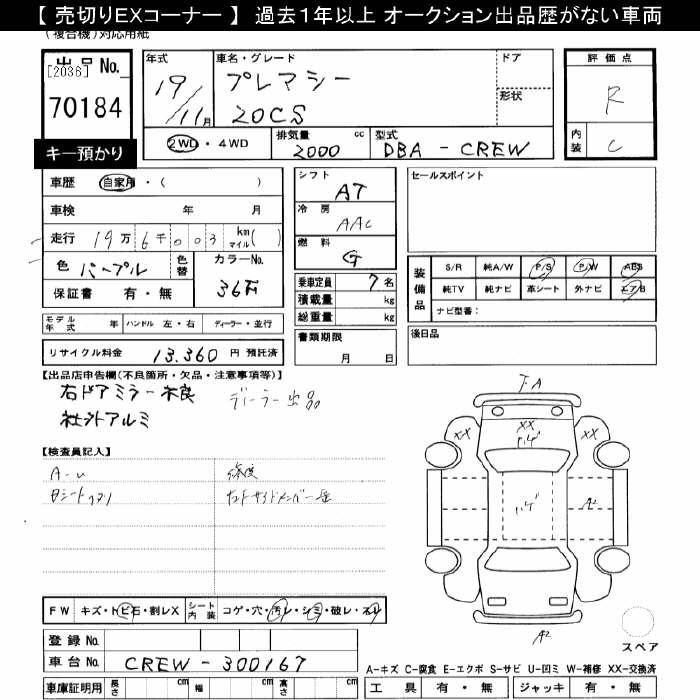 【 売切りEXコーナー 】 過去1年以上 オークション出品歴がない車両
(複合機)対応用紙
出品 No.
[2036]
70184
キー預かり
年式
19/11月
車名・グレード
プレマシー
20CS
ドア
形状
2WD・4WD
排気量 cc
2000
型式
DBA - CREW
評価点
R
内装
C
車歴 自家用・( )
車検 年 月
走行 19万6千003 km マイル( )
色 パープル 色替
カラーNo.
保証書 有・無
シフト
AT
冷房
AAC
燃料
G
乗車定員 7名
積載量 kg
総重量 kg
セールスポイント
装備品
S/R 純A/W P/S P/W ABS
純TV 純ナビ 革シート 外ナビ エアB
ナビ型番:
モデル年式 年 ハンドル 左・右 ディーラー・並行
リサイクル料金 13.360 円 預託済
書類期限
月 日
後日品
【出品店申告欄(不良箇所・欠品・注意事項等)】
右ドアミラー不良 ディーラー出品
社外アルミ
【検査員記入】
A-U
修復
FA
XX
XX
XX
ハゲ
ハゲ
A2
A2
スペア
FW キズ・トビ石・割レX シート内装 コゲ・穴・汚レ・シミ・破レ・スレ
登録 No.
車台 No. CREW - 300167
車庫証明用 長さ cm 幅 cm 高さ cm
A-キズ C-腐食 E-エクボ S-サビ U-凹ミ W-補修 XX-交換済
工具 有・無 ジャッキ 有・無